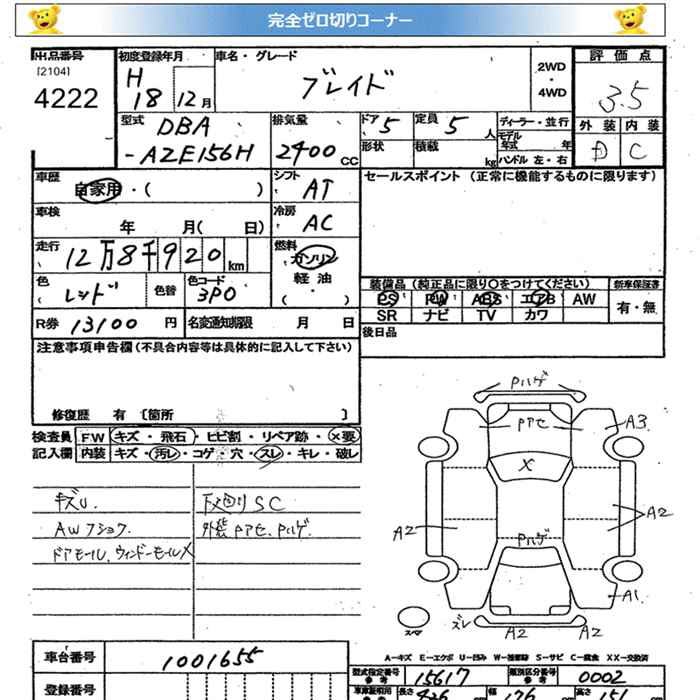 完全ゼロ切りコーナー
出品番号 初度登録年月 車名・グレード 評価点
[2104] H ブレイド 2WD
4222 18年 12月 ・ 4WD 3.5
型式 排気量 ドア 定員 ディーラー・並行 外装 内装
DBA 5 5人 モデル年式 年 D C
-AZE156H 2400cc 形状 積載 kg ハンドル 左・右
車歴 シフト セールスポイント (正常に機能するものに限ります)
自家用・( ) AT
車検 冷房
年 月( 日) AC
走行 燃料
12万8千920km ガソリン
軽油
色 色替 色コード ( ) 装備品 (純正品に限り○をつけてください) 新車保証書
レッド 3P0 PS PW ABS エアB AW 有・無
SR ナビ TV カワ
R券 13100円 名変通知期限 月 日 後日品
注意事項申告欄 (不具合内容等は具体的に記入して下さい)
修復歴 有 [箇所 ]
検査員 FW キズ・飛石・ヒビ割・リペア跡・×要
記入欄 内装 キズ・汚レ・コゲ・穴・スレ・キレ・破レ
キズU. 下廻りSC
AWフショク. 外装Pアセ、Pハゲ.
ドアモール、ウィンドーモール×
Pハゲ
Pアセ A3
×
A2 A2
Pハゲ
A1
スペア ズレ A2 A2
A-キズ E-エクボ U-凹み W-補修跡 S-サビ C-腐食 XX-交換済
車台番号 1001655
型式指定番号 参考 15617 類別区分番号 参考 0002
登録番号 長さ 426 幅 176 高さ 151